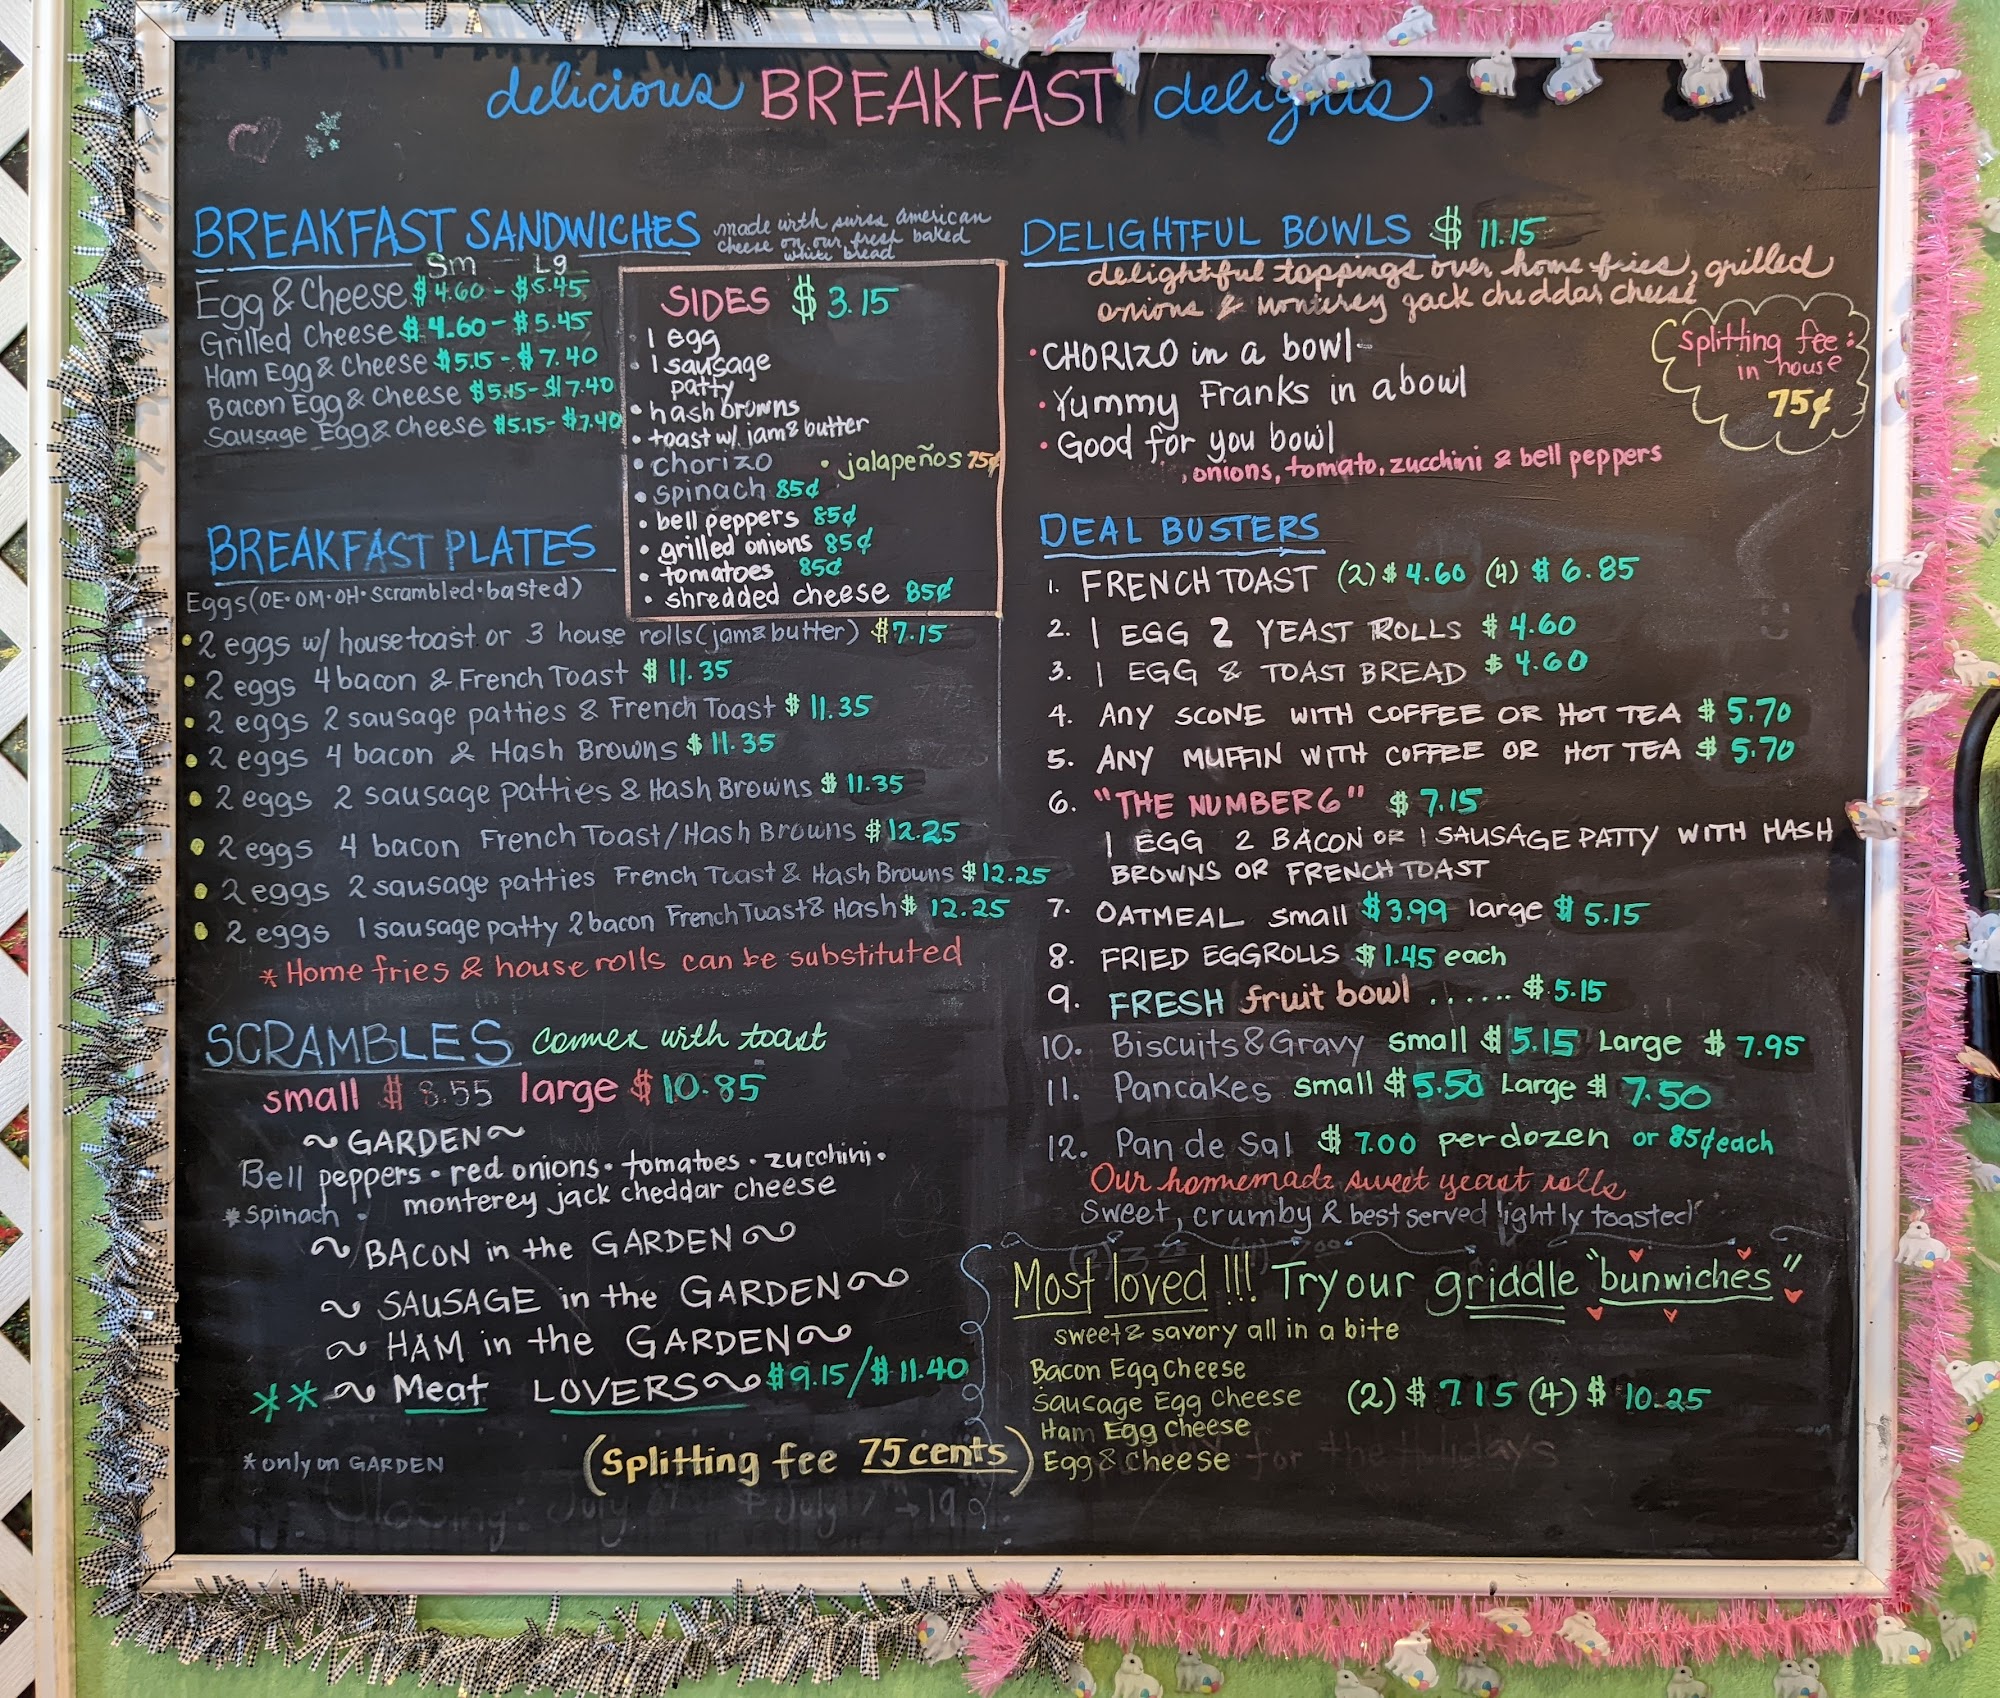 delicious BREAKFAST delights
BREAKFAST SANDWICHES
made with swiss american
cheese on our fresh baked
white bread
Sm - Lg
Egg & Cheese $4.60 - $5.45
Grilled Cheese $4.60 - $5.45
Ham Egg & Cheese $5.15 - $7.40
Bacon Egg & Cheese $5.15 - $7.40
Sausage Egg & Cheese $5.15 - $7.40
SIDES $3.15
• 1 egg
• 1 sausage
patty
• hash browns
• toast w/ jam & butter
• chorizo • jalapeños 75¢
• spinach 85¢
• bell peppers 85¢
• grilled onions 85¢
• tomatoes 85¢
• shredded cheese 85¢
BREAKFAST PLATES
Eggs (OE • OM • OH • scrambled • basted)
• 2 eggs w/ house toast or 3 house rolls (jam & butter) $7.15
• 2 eggs 4 bacon & French Toast $11.35
• 2 eggs 2 sausage patties & French Toast $11.35
• 2 eggs 4 bacon & Hash Browns $11.35
• 2 eggs 2 sausage patties & Hash Browns $11.35
• 2 eggs 4 bacon French Toast/Hash Browns $12.25
• 2 eggs 2 sausage patties French Toast & Hash Browns $12.25
• 2 eggs 1 sausage patty 2 bacon French Toast & Hash $12.25
* Home fries & house rolls can be substituted
SCRAMBLES comes with toast
small $8.55 large $10.85
~ GARDEN ~
Bell peppers • red onions • tomatoes • zucchini •
monterey jack cheddar cheese
* Spinach •
~ BACON in the GARDEN ~
~ SAUSAGE in the GARDEN ~
~ HAM in the GARDEN ~
** ~ Meat LOVERS ~ $9.15/$11.40
* only on GARDEN
(Splitting fee 75 cents)
Closing: July
DELIGHTFUL BOWLS $11.15
delightful toppings over home fries, grilled
onions & monterey jack cheddar cheese
• CHORIZO in a bowl
• Yummy Franks in a bowl
• Good for you bowl
onions, tomato, zucchini & bell peppers
splitting fee:
in house
75¢
DEAL BUSTERS
1. FRENCH TOAST (2) $4.60 (4) $6.85
2. 1 EGG 2 YEAST ROLLS $4.60
3. 1 EGG & TOAST BREAD $4.60
4. ANY SCONE WITH COFFEE OR HOT TEA $5.70
5. ANY MUFFIN WITH COFFEE OR HOT TEA $5.70
6. "THE NUMBER 6" $7.15
1 EGG 2 BACON OR 1 SAUSAGE PATTY WITH HASH
BROWNS OR FRENCH TOAST
7. OATMEAL small $3.99 large $5.15
8. FRIED EGGROLLS $1.45 each
9. FRESH fruit bowl ...... $5.15
10. Biscuits & Gravy small $5.15 Large $7.95
11. Pancakes small $5.50 Large $7.50
12. Pan de Sal $7.00 per dozen or 85¢ each
Our homemade sweet yeast rolls
Sweet, crumby & best served lightly toasted!
Most loved!!! Try our griddle "bunwiches"
sweet & savory all in a bite
Bacon Egg Cheese
Sausage Egg Cheese (2) $7.15 (4) $10.25
Ham Egg Cheese
Egg & Cheese
for the Holidays